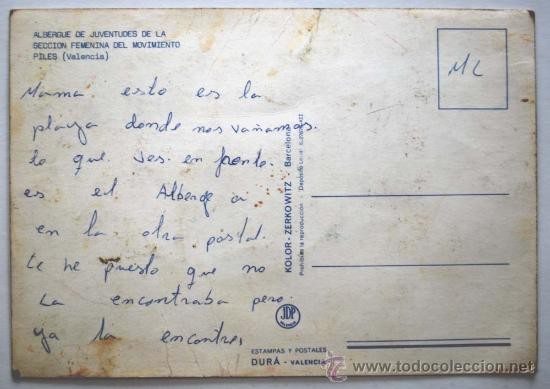 ALBERGUE DE JUVENTUDES DE LA
SECCION FEMENINA DEL MOVIMIENTO
PILES (Valencia)
ML
Mama esto es la
playa donde nos vañamos.
lo que. Ves. en frente.
es el Alberge a
en la otra postal.
te he puesto que no
la encontraba pero.
ya la encontre,
KOLOR - ZERKOWITZ - Barcelona
Prohibida la reproducción - Depósito Legal
JDP
VALENCIA
ESTAMPAS Y POSTALES
DURÁ - VALENCIA
www.todocoleccion.net